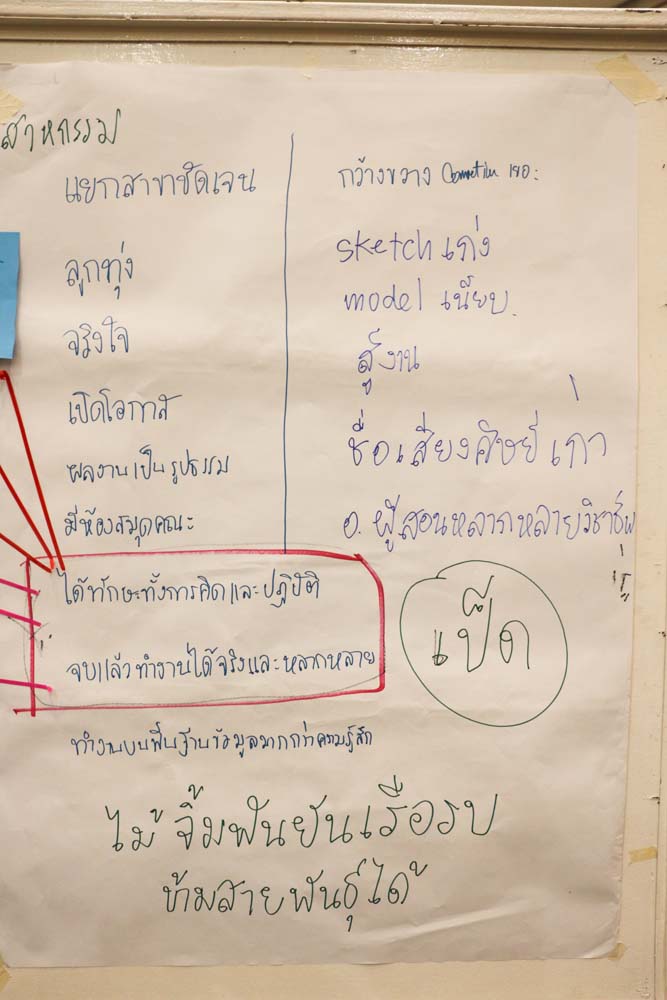 สาหกรรม
แยกสาขาชัดเจน
ลูกทุ่ง
จริงใจ
เปิดโอกาส
ผลงานเป็นรูปธรรม
มีห้องสมุดคณะ
ได้ทักษะทั้งการคิดและปฏิบัติ
จบแล้วทำงานได้จริงและหลากหลาย
ทำงานบนพื้นฐานข้อมูลมากกว่าความรู้สึก
กว้างขวาง เยอะ
sketch เก่ง
model เนี๊ยบ
สู้งาน
ชื่อเสียงศิษย์เก่า
อ. ผู้สอนหลากหลายวิชาชีพ
เป็ด
ไม้จิ้มฟันยันเรือรบ
ข้ามสายพันธุ์ได้